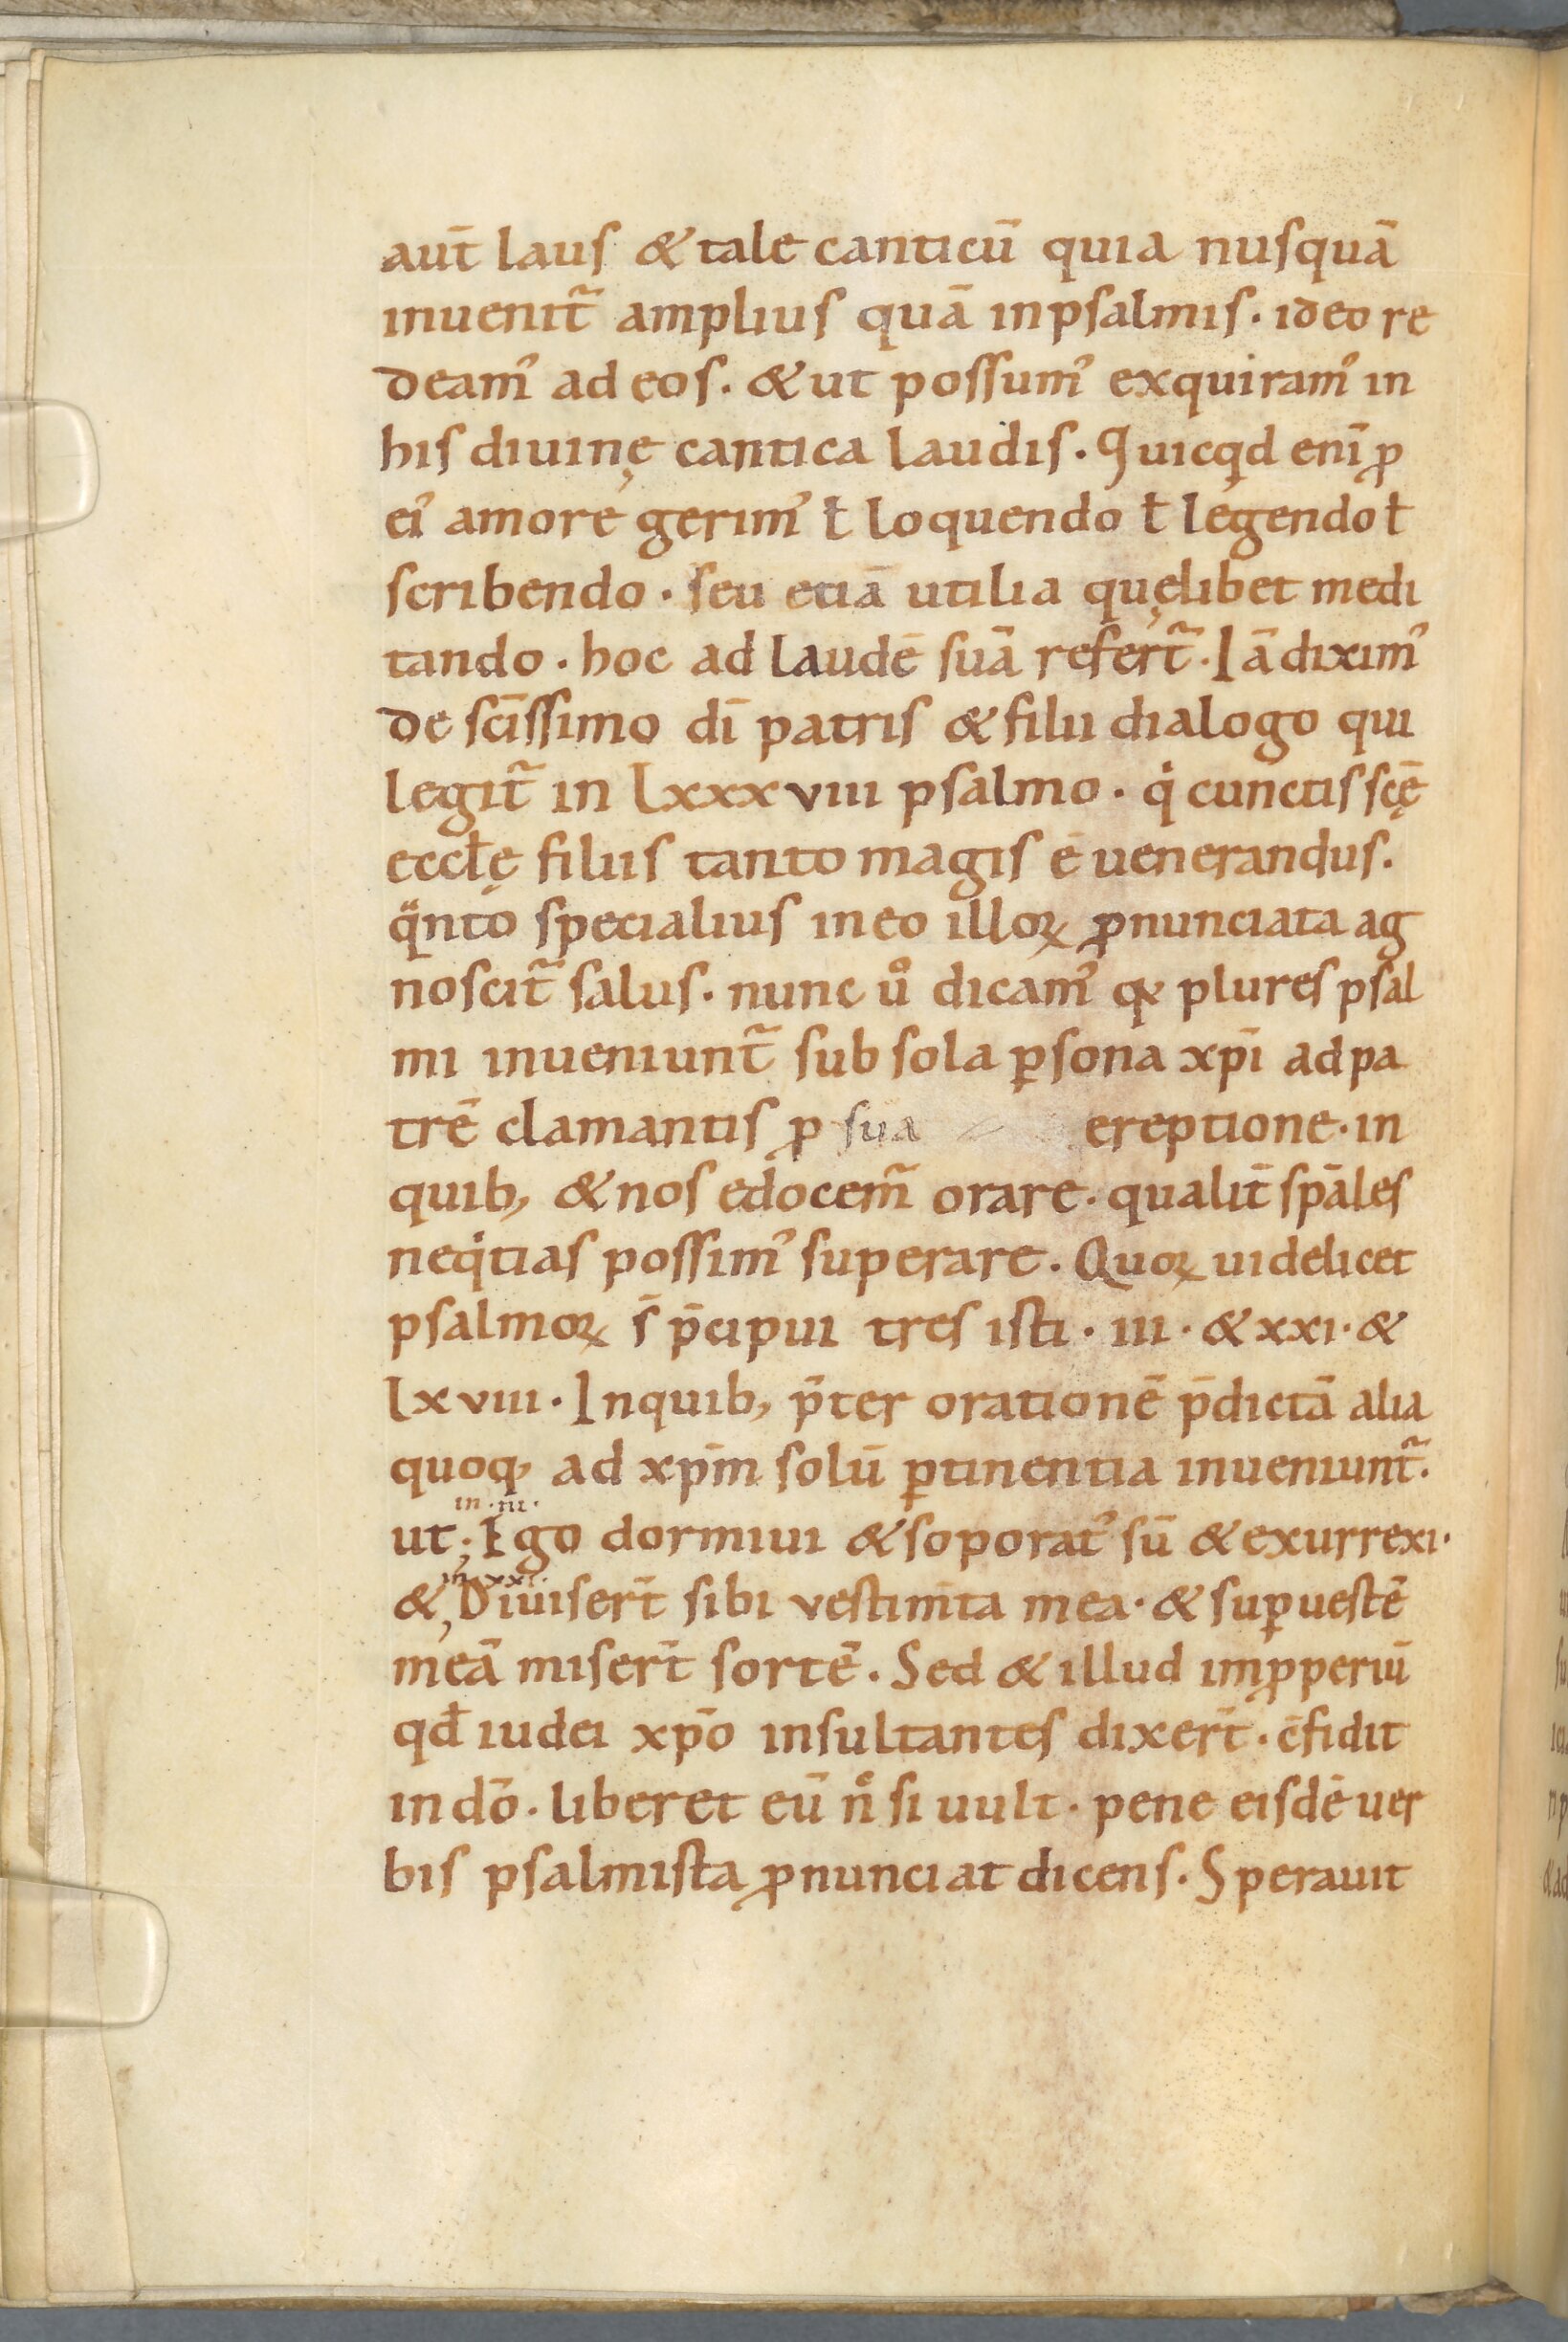 aut̄ laus & tale canticū quia nusquā
inuenit᷑ amplius quā inpsalmis. ideo re
deamꝰ ad eos. & ut possumꝰ exquiramꝰ in
his diuinę cantica laudis. Quicqd enī ꝓ
eiꝰ amore gerimꝰ ł loquendo ł legendo ł
scribendo. seu etiā utilia quęlibet medi
tando. hoc ad laudē suā refert᷑. Iā diximꝰ
de scīssimo dī patris & filii dialogo qui
legit᷑ in lxxxviii psalmo. qͥ cunctis scę̄
eccłę filiis tanto magis ē uenerandus.
qͣnto specialius in eo illoꝝ ꝓnunciata ag
noscit᷑ salus. nunc uͦ dicamꝰ qꝫ plures psal
mi inueniunt᷑ sub sola ꝑsona xpī ad pa
trē clamantis ꝓ sua ereptione. in
quibꝫ & nos edocem᷑ orare. qualit̄ spāles
neqͥtias possimꝰ superare. Quoꝝ uidelicet
psalmoꝝ s̄ p̄cipui tres isti. iii. & xxi. &
lxviii. Inquibꝫ p̄ter orationē p̄dictā alia
quoqꝫ ad xpm̄ solū ꝑtinentia inueniunt᷑.
in .iii.
ut; Ego dormiui & soporatꝰ sū & exurrexi.
in xxi.
&, Diuisert̄ sibi vestim̄ta mea. & suꝑ uestē
meā misert̄ sortē. Sed & illud imꝓperiū
qđ iudei xpō insultantes dixert̄. c̄fidit
in dō. liberet eū nͨ si uult. pene eisdē uer
bis psalmista ꝓnunciat dicens. Sperauit